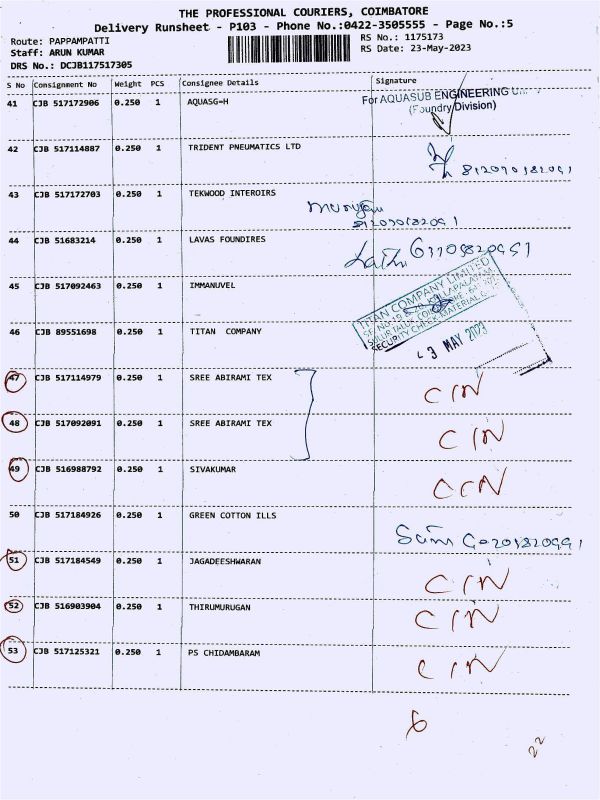 THE PROFESSIONAL COURIERS, COIMBATORE
Delivery Runsheet - P103 - Phone No.:0422-3505555 - Page No.:5
Route: PAPPAMPATTI
Staff: ARUN KUMAR
DRS No.: DCJB117517305
RS No.: 1175173
RS Date: 23-May-2023
S No Consignment No Weight PCS Consignee Details Signature
41 CJB 517172906 0.250 1 AQUASG=H
For AQUASUB ENGINEERING
(Foundry Division)
42 CJB 517114887 0.250 1 TRIDENT PNEUMATICS LTD
43 CJB 517172703 0.250 1 TEKWOOD INTEROIRS
44 CJB 51683214 0.250 1 LAVAS FOUNDIRES
45 CJB 517092463 0.250 1 IMMANUVEL
TITAN COMPANY LIMITED
46 CJB 89551698 0.250 1 TITAN COMPANY
MAY 2023
47 CJB 517114979 0.250 1 SREE ABIRAMI TEX CIN
48 CJB 517092091 0.250 1 SREE ABIRAMI TEX CIN
49 CJB 516988792 0.250 1 SIVAKUMAR CIN
50 CJB 517184926 0.250 1 GREEN COTTON ILLS
51 CJB 517184549 0.250 1 JAGADEESHWARAN CIN
52 CJB 516903904 0.250 1 THIRUMURUGAN CIN
53 CJB 517125321 0.250 1 PS CHIDAMBARAM CIN
6
22